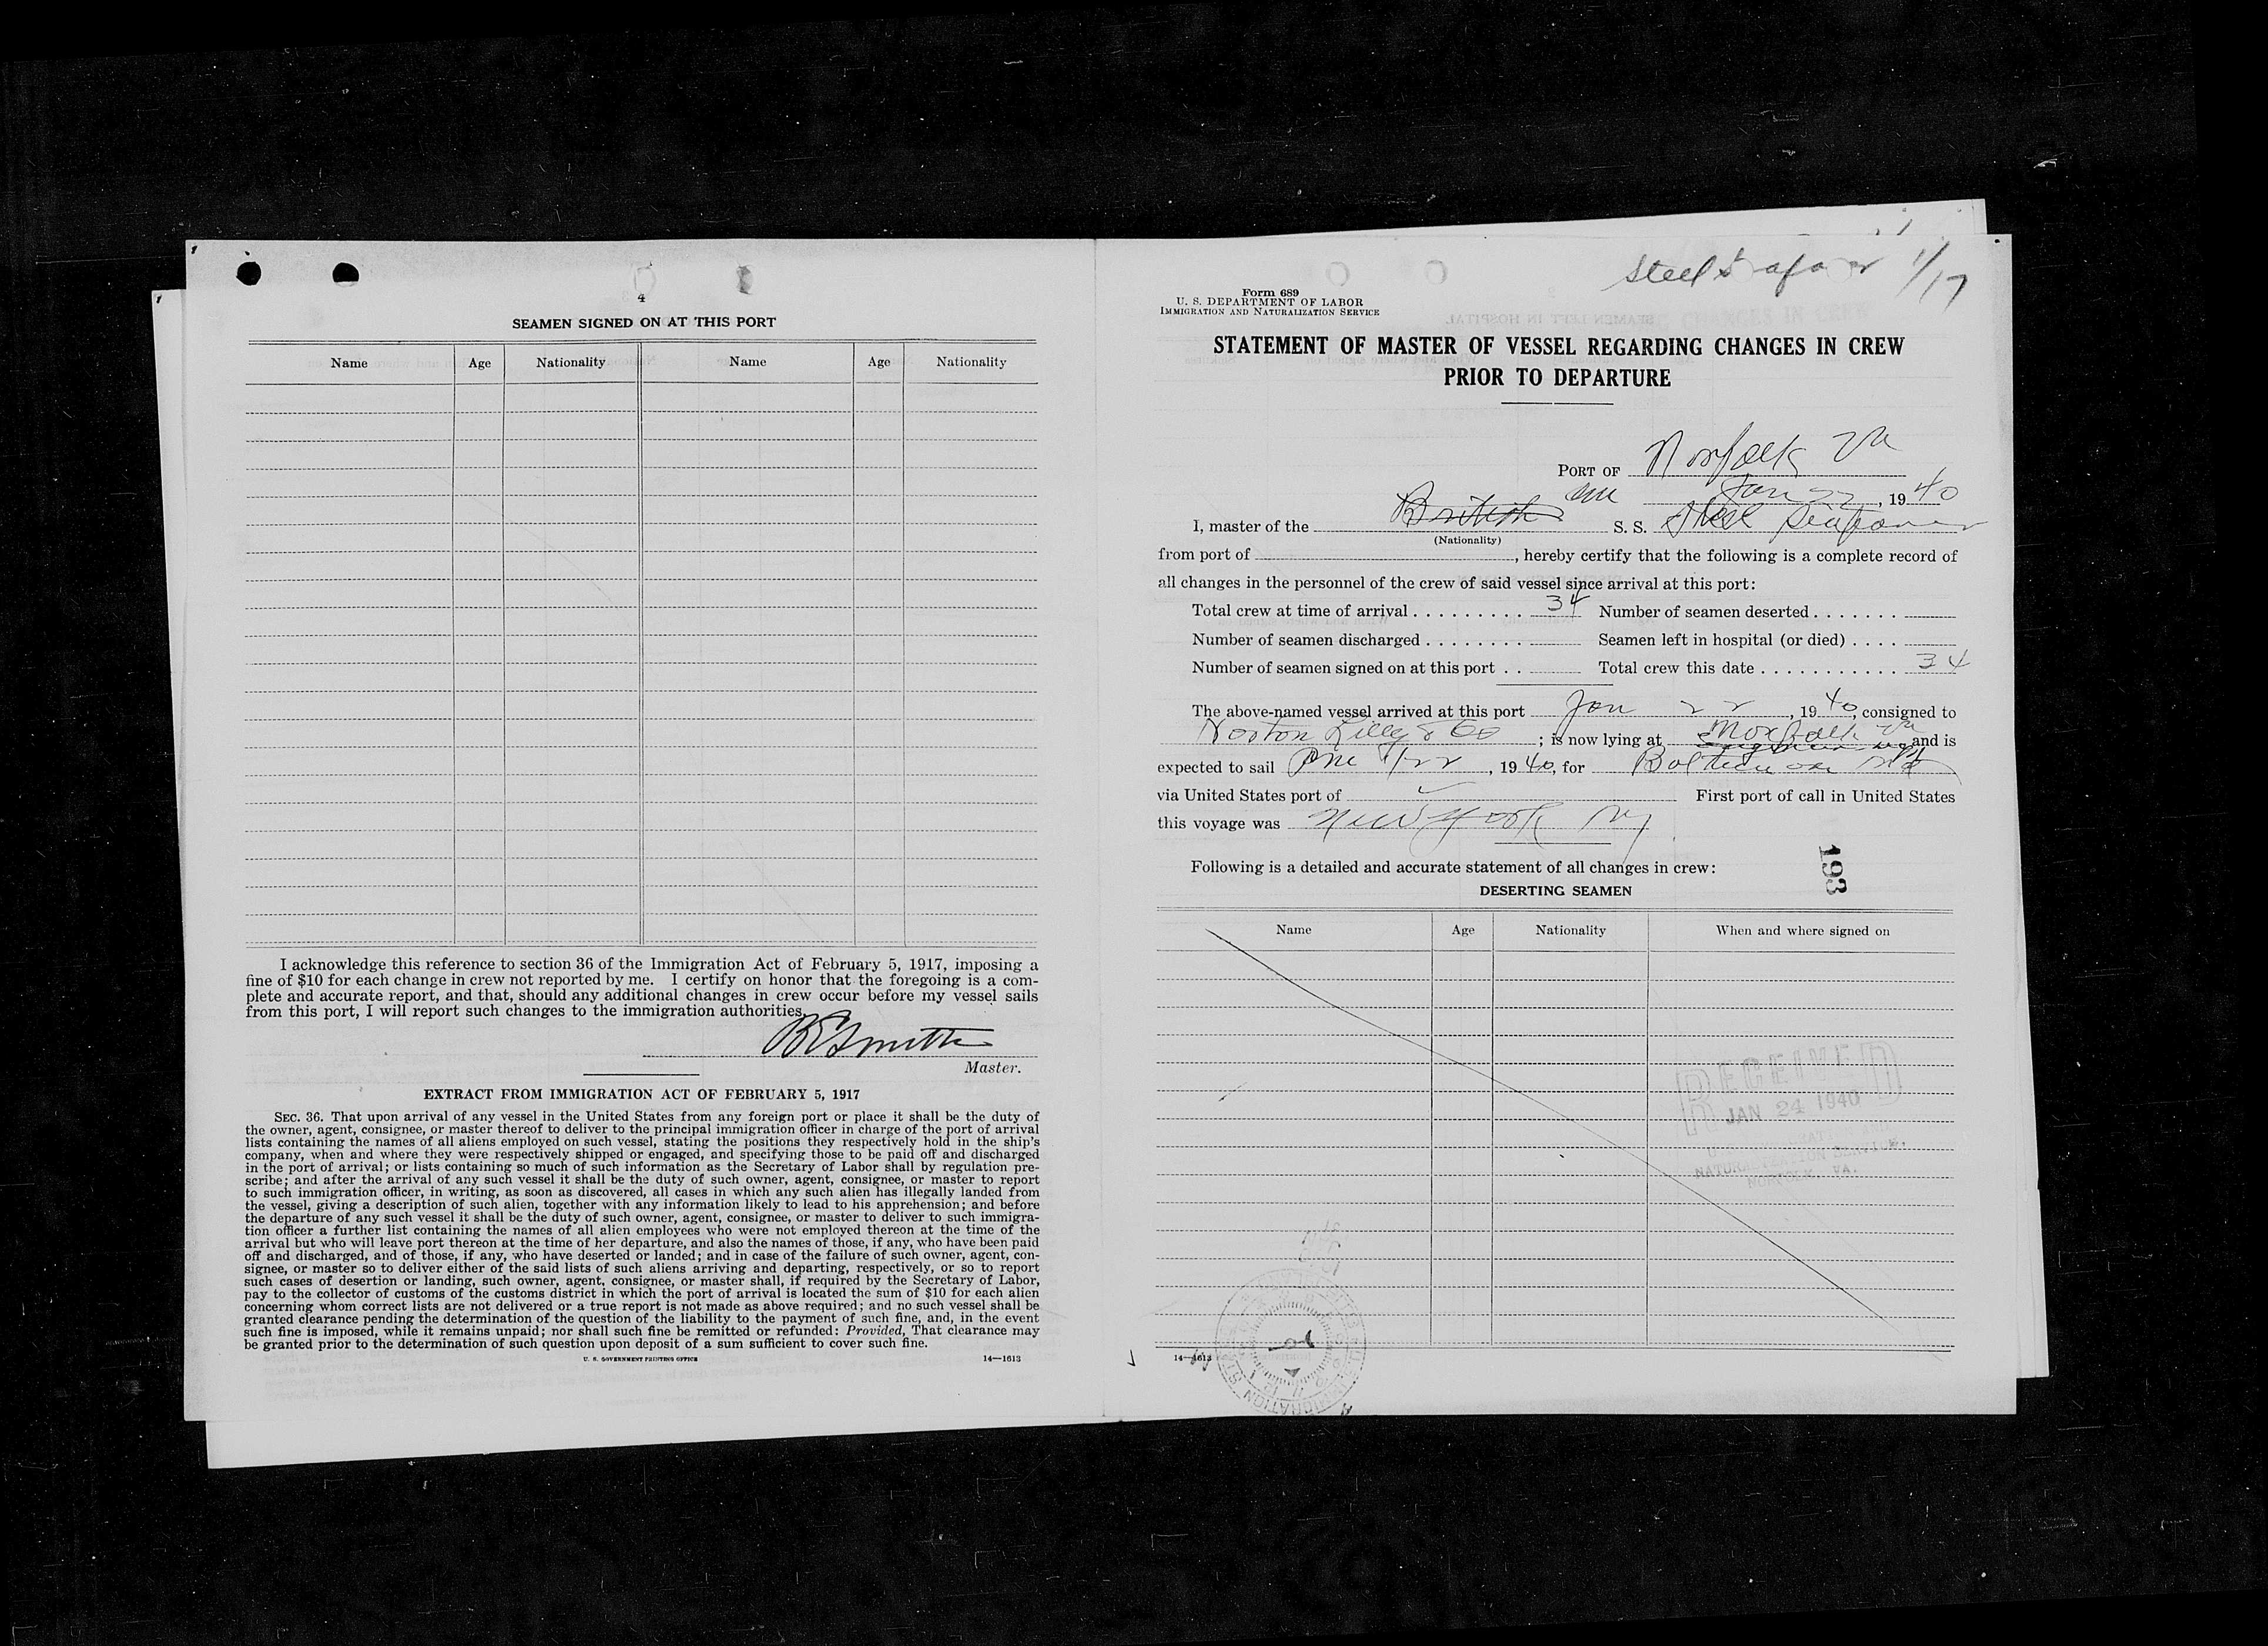 4
SEAMEN SIGNED ON AT THIS PORT
Name Age Nationality Name Age Nationality
I acknowledge this reference to section 36 of the Immigration Act of February 5, 1917, imposing a
fine of $10 for each change in crew not reported by me. I certify on honor that the foregoing is a com-
plete and accurate report, and that, should any additional changes in crew occur before my vessel sails
from this port, I will report such changes to the immigration authorities.
B E Smith
Master.
EXTRACT FROM IMMIGRATION ACT OF FEBRUARY 5, 1917
SEC. 36. That upon arrival of any vessel in the United States from any foreign port or place it shall be the duty of
the owner, agent, consignee, or master thereof to deliver to the principal immigration officer in charge of the port of arrival
lists containing the names of all aliens employed on such vessel, stating the positions they respectively hold in the ship's
company, when and where they were respectively shipped or engaged, and specifying those to be paid off and discharged
in the port of arrival; or lists containing so much of such information as the Secretary of Labor shall by regulation pre-
scribe; and after the arrival of any such vessel it shall be the duty of such owner, agent, consignee, or master to report
to such immigration officer, in writing, as soon as discovered, all cases in which any such alien has illegally landed from
the vessel, giving a description of such alien, together with any information likely to lead to his apprehension; and before
the departure of any such vessel it shall be the duty of such owner, agent, consignee, or master to deliver to such immigra-
tion officer a further list containing the names of all alien employees who were not employed thereon at the time of the
arrival but who will leave port thereon at the time of her departure, and also the names of those, if any, who have been paid
off and discharged, and of those, if any, who have deserted or landed; and in case of the failure of such owner, agent, con-
signee, or master so to deliver either of the said lists of such aliens arriving and departing, respectively, or so to report
such cases of desertion or landing, such owner, agent, consignee, or master shall, if required by the Secretary of Labor,
pay to the collector of customs of the customs district in which the port of arrival is located the sum of $10 for each alien
concerning whom correct lists are not delivered or a true report is not made as above required; and no such vessel shall be
granted clearance pending the determination of the question of the liability to the payment of such fine, and, in the event
such fine is imposed, while it remains unpaid; nor shall such fine be remitted or refunded: Provided, That clearance may
be granted prior to the determination of such question upon deposit of a sum sufficient to cover such fine.
U. S. GOVERNMENT PRINTING OFFICE 14—1613
Steel 1/17
Form 689
U. S. DEPARTMENT OF LABOR
IMMIGRATION AND NATURALIZATION SERVICE
STATEMENT OF MASTER OF VESSEL REGARDING CHANGES IN CREW
PRIOR TO DEPARTURE
PORT OF Norfolk Va
Jan 22, 1940
I, master of the British S. S. Steel Seafarer
(Nationality)
from port of , hereby certify that the following is a complete record of
all changes in the personnel of the crew of said vessel since arrival at this port:
Total crew at time of arrival . . . . . . . . . 34 Number of seamen deserted . . . . . . .
Number of seamen discharged . . . . . . . . Seamen left in hospital (or died) . . . .
Number of seamen signed on at this port . . Total crew this date . . . . . . . . . . . 34
The above-named vessel arrived at this port Jan 22, 1940, consigned to
Norton Lilly & Co ; is now lying at Norfolk Va and is
expected to sail PM 1/22, 1940, for Baltimore Md
via United States port of First port of call in United States
this voyage was New York NY
193
Following is a detailed and accurate statement of all changes in crew:
DESERTING SEAMEN
Name Age Nationality When and where signed on
RECEIVED
JAN 24 1940
NATURALIZATION SERVICE
NORFOLK, VA.
14—1613